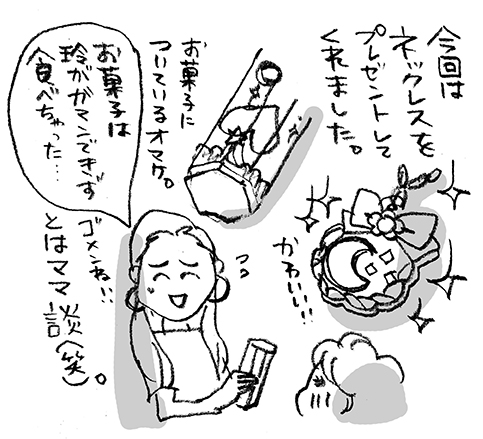 今回は
ネックレスを
プレゼントして
くれました。
お菓子に
ついているオマケ。
お菓子は
玲がガマンできず
食べちゃった…
かわいい!!
ゴメンね!!
とはママ談(笑)。